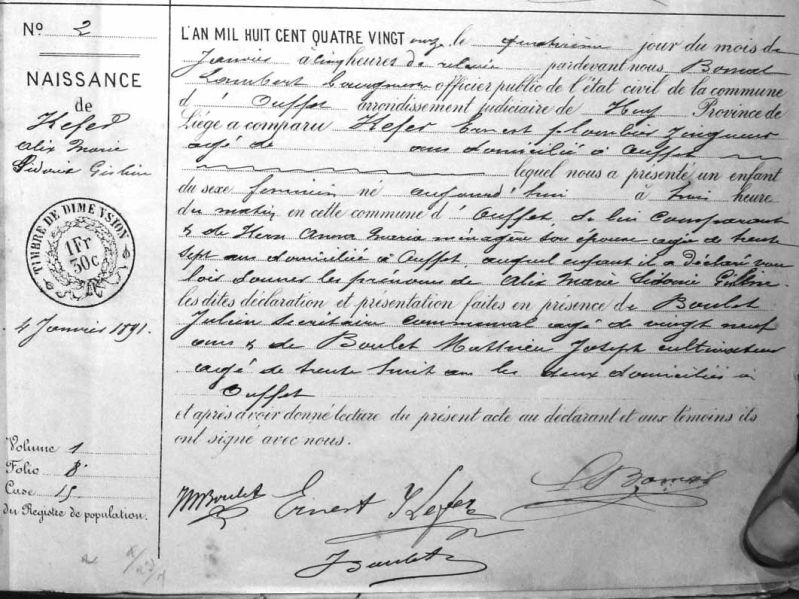 No 2
NAISSANCE
de
Kefer
Alix Marie
Sidonie Gislène
TIMBRE DE DIMENSION
1 Fr
30c
4 Janvier 1891.
Volume 1
Folio 8
Case 15
du Registre de population.
L'AN MIL HUIT CENT QUATRE VINGT onze le quatrième jour du mois de
Janvier à cinq heures de relevée pardevant nous Bomal
Lambert officier public de l'état civil de la commune
d' Ouffet arrondissement judiciaire de Huy Province de
Liége a comparu Kefer Ernest plombier zingueur
agé de ans domicilié à Ouffet
lequel nous a présenté un enfant
du sexe féminin né aujourd'hui à huit heure
du matin en cette commune d' Ouffet de lui comparant
& de Hern Anna Maria ménagère son épouse agée de trente
sept ans domiciliée à Ouffet, auquel enfant il a déclaré vou
loir donner les prénoms de Alix Marie Sidonie Gislène.
les dites déclaration et présentation faites en présence de Boulet
Julien secrétaire communal agé de vingt neuf
ans & de Boulet Mathieu Joseph cultivateur
agé de trente huit ans les deux domiciliés à
Ouffet
et après avoir donné lecture du présent acte au déclarant et aux témoins ils
ont signé avec nous.
MBoulet Ernest Kefer L Bomal
J Boulet